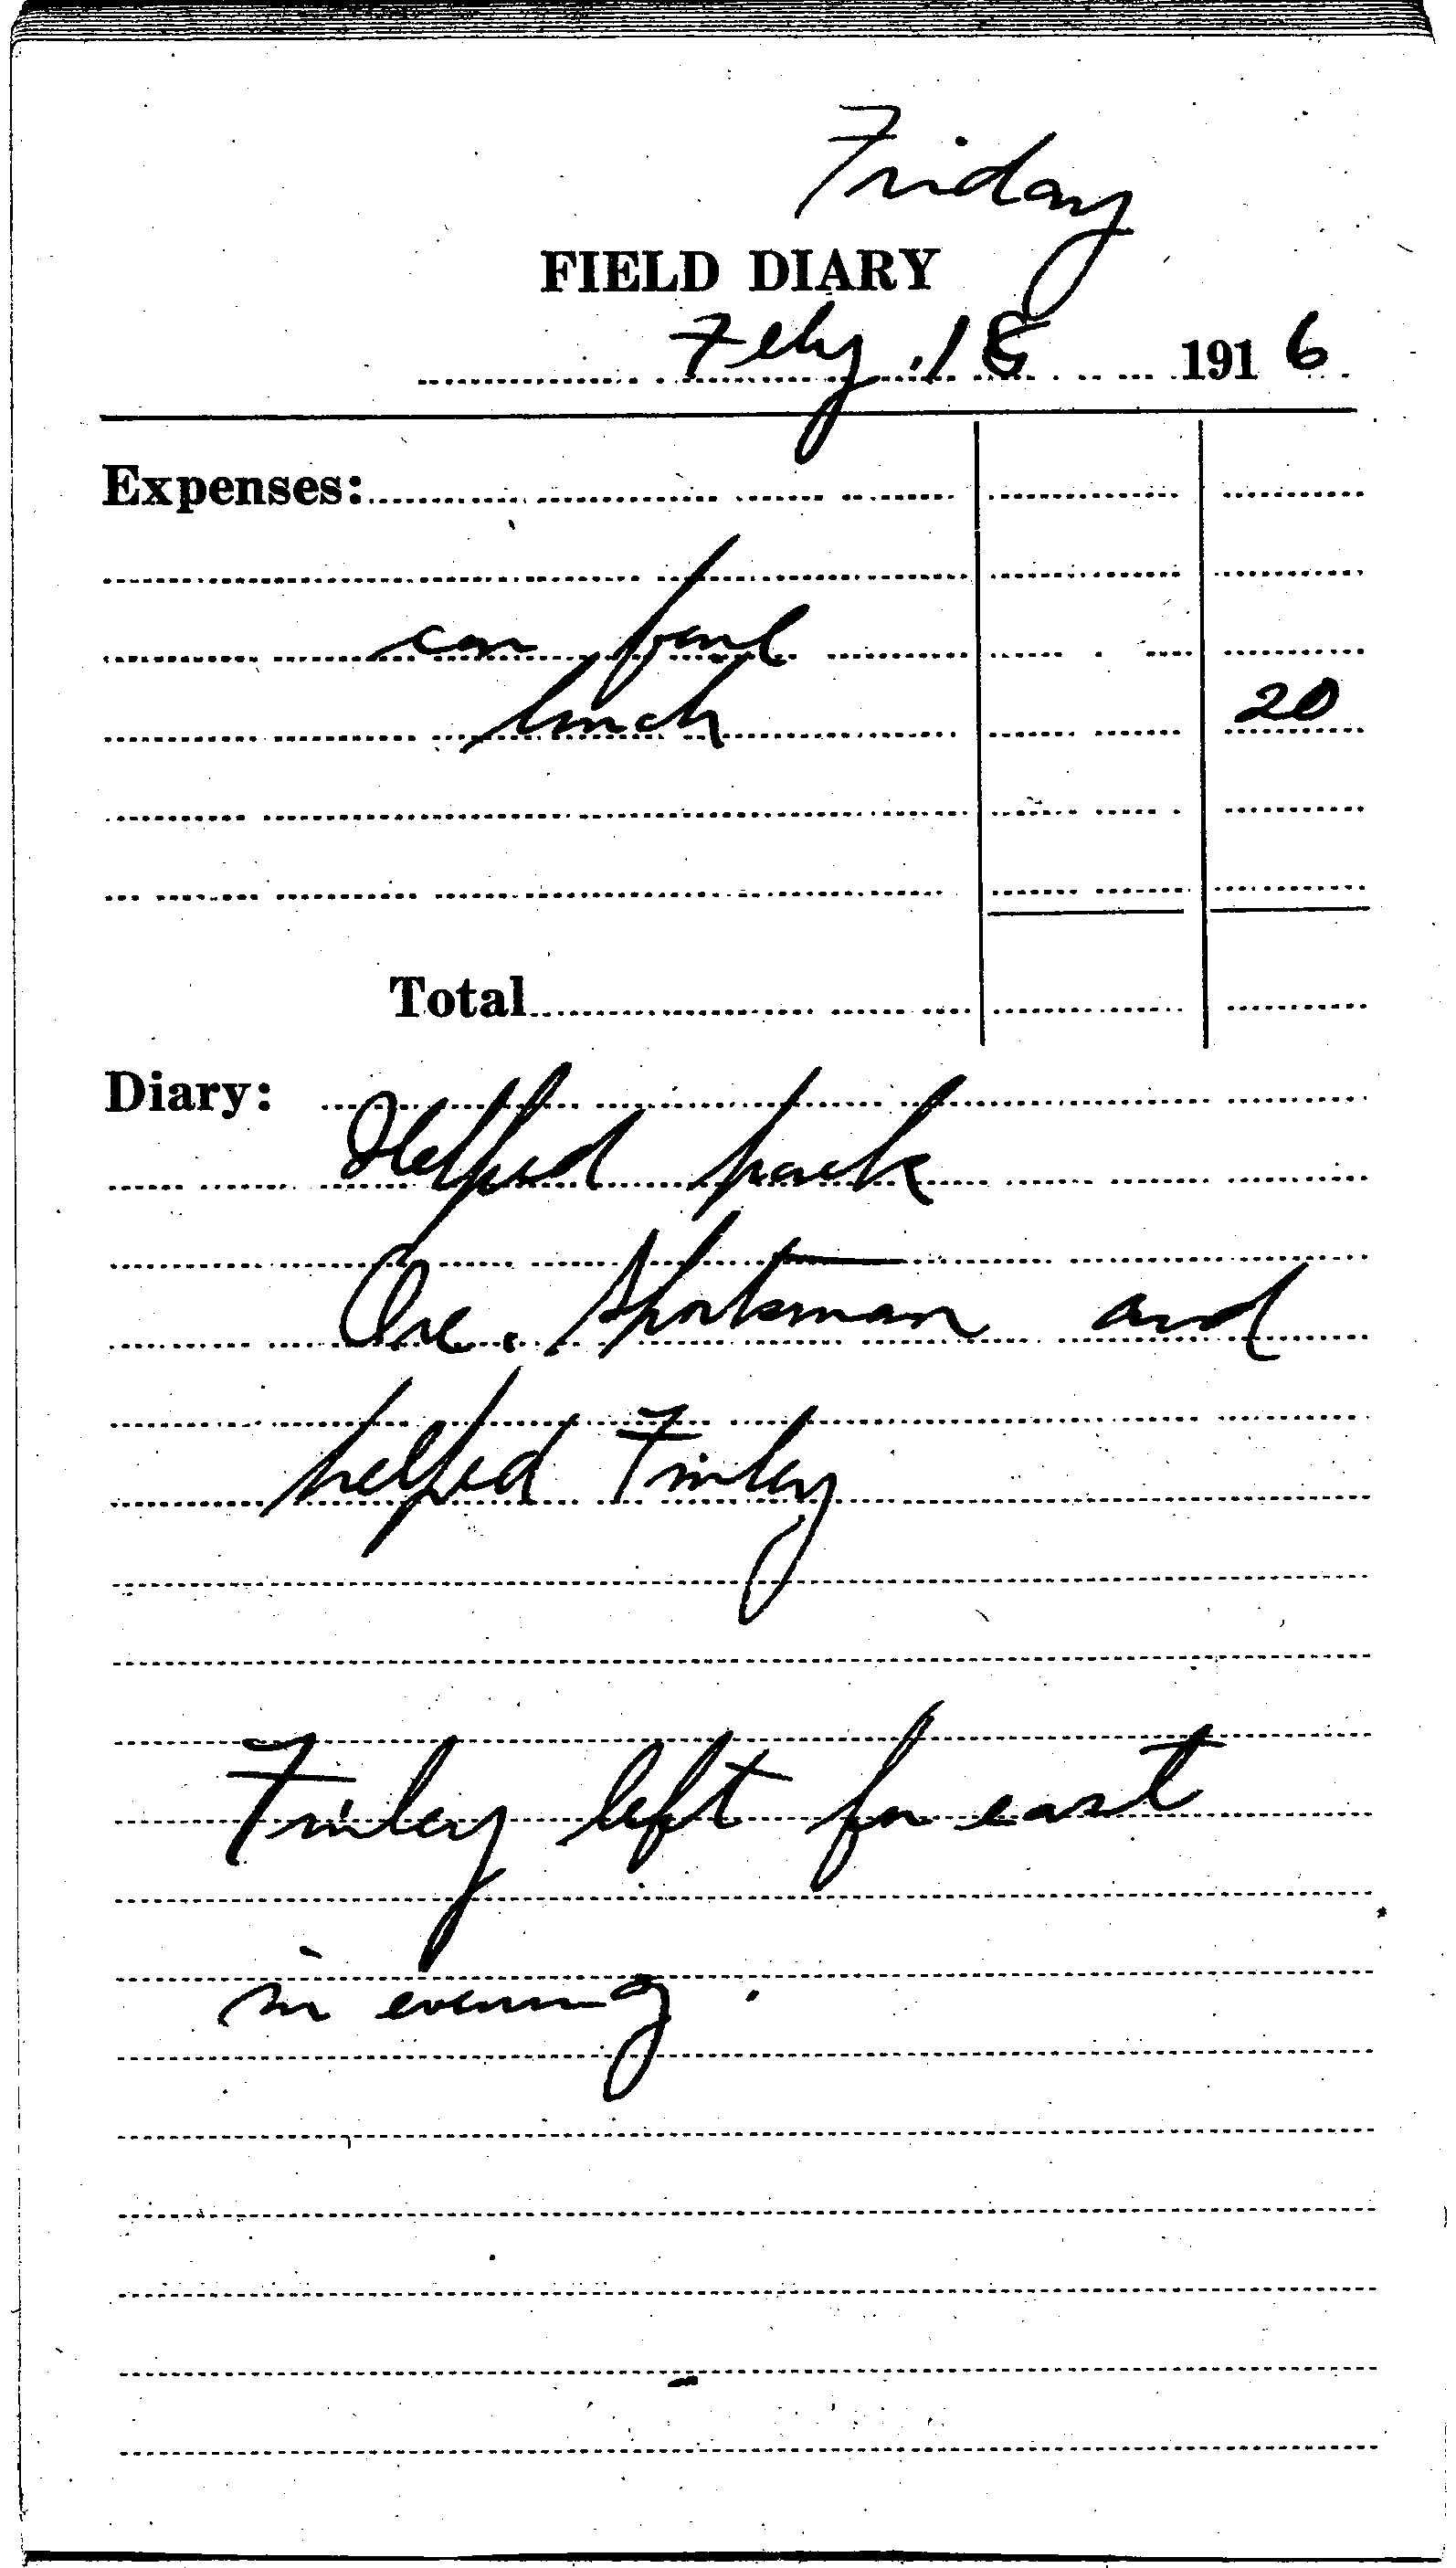 Friday
FIELD DIARY
Feby. 18 1916
Expenses:
car fare
lunch 20
Total
Diary:
Helped pack
Ore. Sportsman and
helped Finley
Finley left for east
in evening.